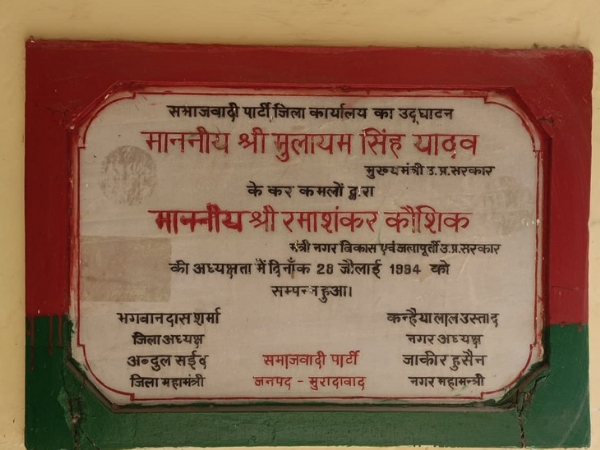 समाजवादी पार्टी जिला कार्यालय का उद्घाटन
माननीय श्री मुलायम सिंह यादव
मुख्यमंत्री उ.प्र.सरकार
के कर कमलों द्वारा
माननीय श्री रमाशंकर कौशिक
मंत्री नगर विकास एवं जलापूर्ती उ.प्र.सरकार
की अध्यक्षता में दिनाँक 28 जौलाई 1994 को
सम्पन्न हुआ।
भगवानदास शर्मा
जिला अध्यक्ष
अब्दुल सईद
जिला महामंत्री
समाजवादी पार्टी
जनपद - मुरादाबाद
कन्हैयालाल उस्ताद
नगर अध्यक्ष
जाकीर हुसैन
नगर महामन्त्री